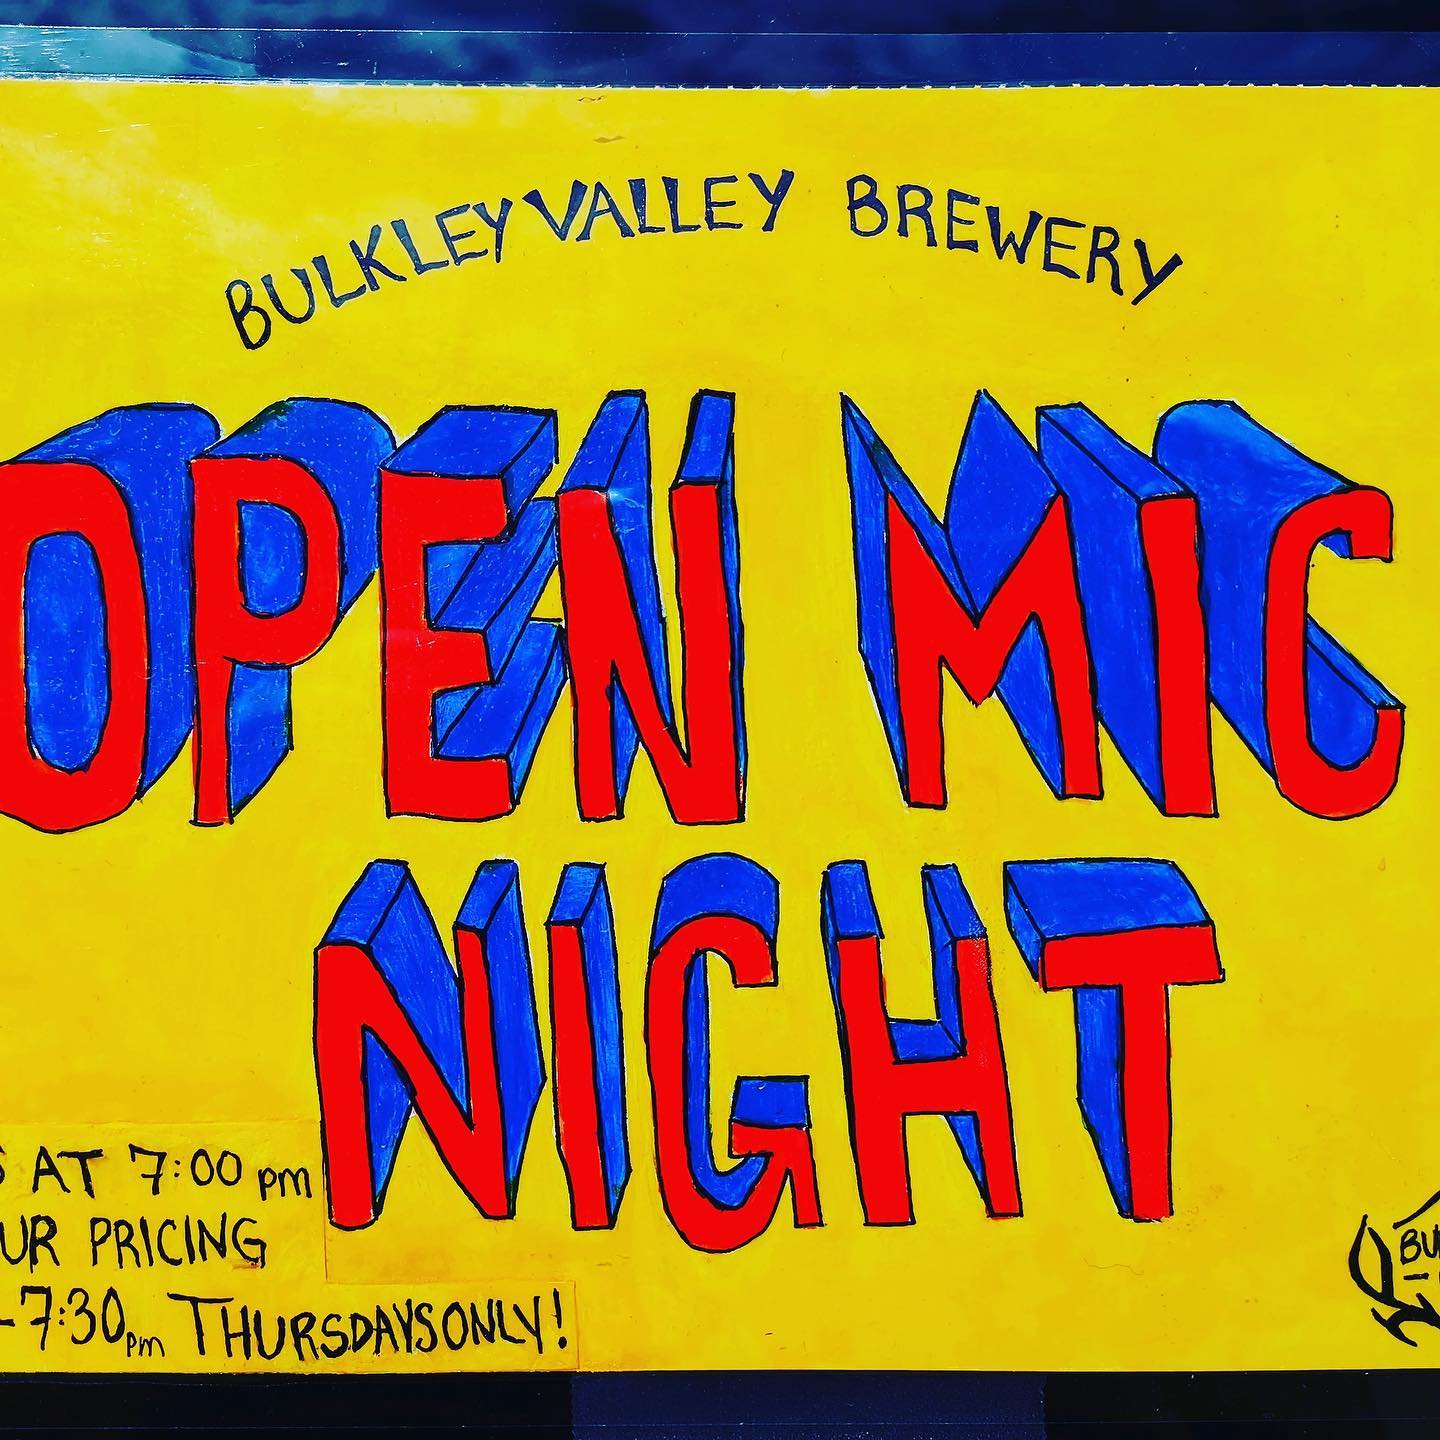 BULKLEY VALLEY BREWERY
OPEN MIC
NIGHT
S AT 7:00 pm
UR PRICING
-7:30pm THURSDAYS ONLY!
BU